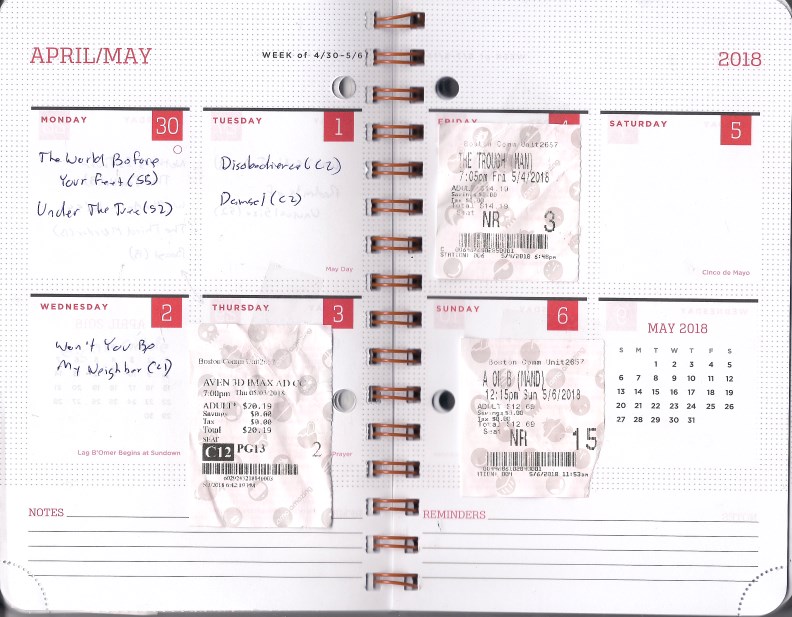 APRIL/MAY
WEEK of 4/30–5/6
2018
MONDAY 30
The World Before
Your Feet (S5)
Under The Tree (S2)
TUESDAY 1
Disobedience (C2)
Damsel (C2)
May Day
FRIDAY 4
Boston Comm Unit2657
THE TROUGH (MAN)
7:05pm Fri 5/4/2018
ADULT $14.19
Savings $0.00
Tax $0.00
Total $14.19
Seat
NR 3
STATION: 006 5/4/2018 6:48pm
SATURDAY 5
Cinco de Mayo
WEDNESDAY 2
Won't You Be
My Neighbor (C1)
Lag B'Omer Begins at Sundown
THURSDAY 3
Boston Comm Unit2657
AVEN 3D IMAX AD CC
7:00pm Thu 05/03/2018
ADULT* $20.19
Savings $0.00
Tax $0.00
Total $20.19
SEAT
C12 PG13 2
Prayer
SUNDAY 6
Boston Comm Unit2657
A OF B (MAND)
12:15pm Sun 5/6/2018
ADULT $12.69
Savings $0.00
Tax $0.00
Total $12.69
Seat
NR 15
5/6/2018 11:53am
MAY 2018
S M T W T F S
1 2 3 4 5
6 7 8 9 10 11 12
13 14 15 16 17 18 19
20 21 22 23 24 25 26
27 28 29 30 31
NOTES
REMINDERS